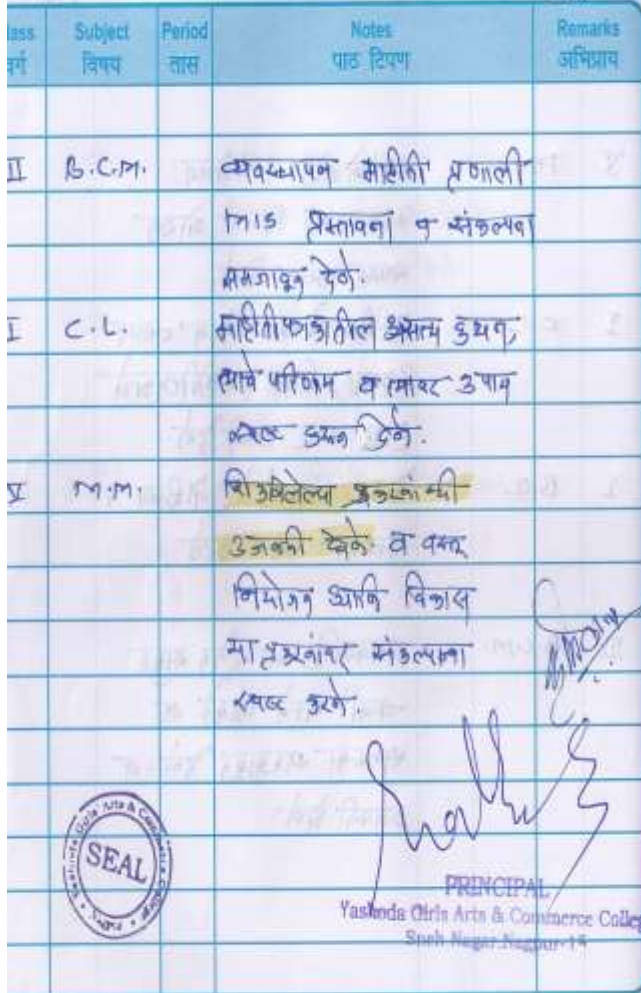 ass Subject Period Notes Remarks
वर्ग विषय तास पाठ टिपण अभिप्राय
II B.C.M. व्यवस्थापन माहिती प्रणाली
MIS प्रस्तावना व संकल्पना
समजावून देणे.
I C.L. माहितीपत्रकातील असत्य कथन,
त्याचे परिणाम व त्यावर उपाय
स्पष्ट करून देणे.
V M.M. शिकविलेल्या प्रकरणांची
उजळणी देणे व वस्तू
नियोजन आणि विकास
या प्रकरणावर संकल्पना
स्पष्ट करणे.
Arts & Commerce College
SEAL
PRINCIPAL
Yashoda Girls Arts & Commerce Colleg
Sneh Nagar, Nagpur-15